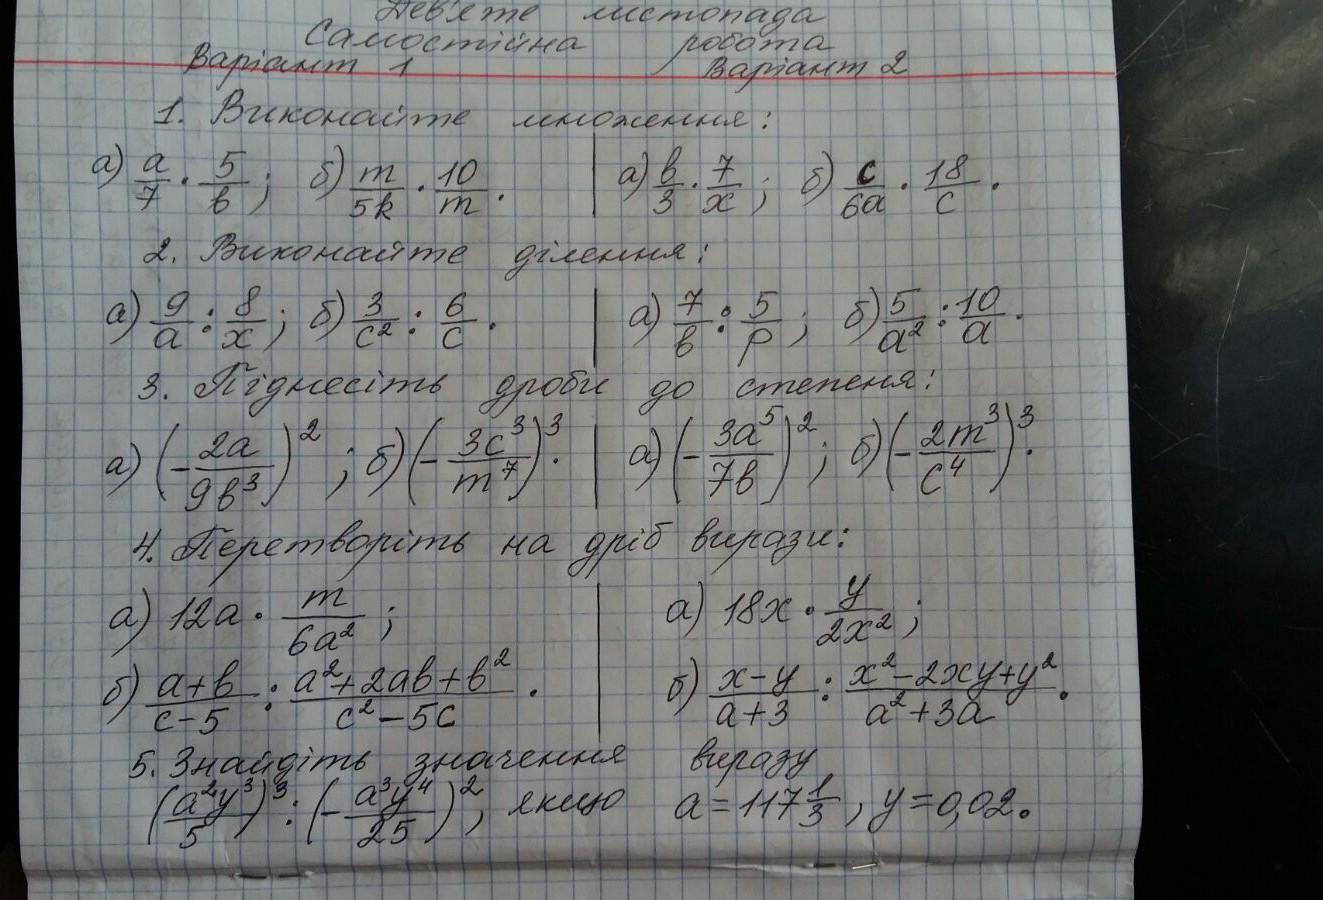 Дев'яте листопада
Самостійна робота
Варіант 1 Варіант 2
1. Виконайте множення:
а) a/7 · 5/b; б) m/5k · 10/m. | а) b/3 · 7/x; б) c/6a · 18/c.
2. Виконайте ділення:
а) 9/a : 8/x; б) 3/c² : 6/c. | а) 7/b : 5/p; б) 5/a² : 10/a.
3. Піднесіть дроби до степеня:
а) (-2a/9b³)²; б) (-3c³/m⁷)³. | а) (-3a⁵/7b)²; б) (-2m³/c⁴)³.
4. Перетворіть на дріб вирази:
а) 12a · m/6a²; | а) 18x · y/2x²;
б) (a+b)/(c-5) : (a²+2ab+b²)/(c²-5c). | б) (x-y)/(a+3) : (x²-2xy+y²)/(a²+3a).
5. Знайдіть значення виразу
(a²y³/5)³ : (-a³y⁴/25)², якщо a=117 1/3, y=0,02.